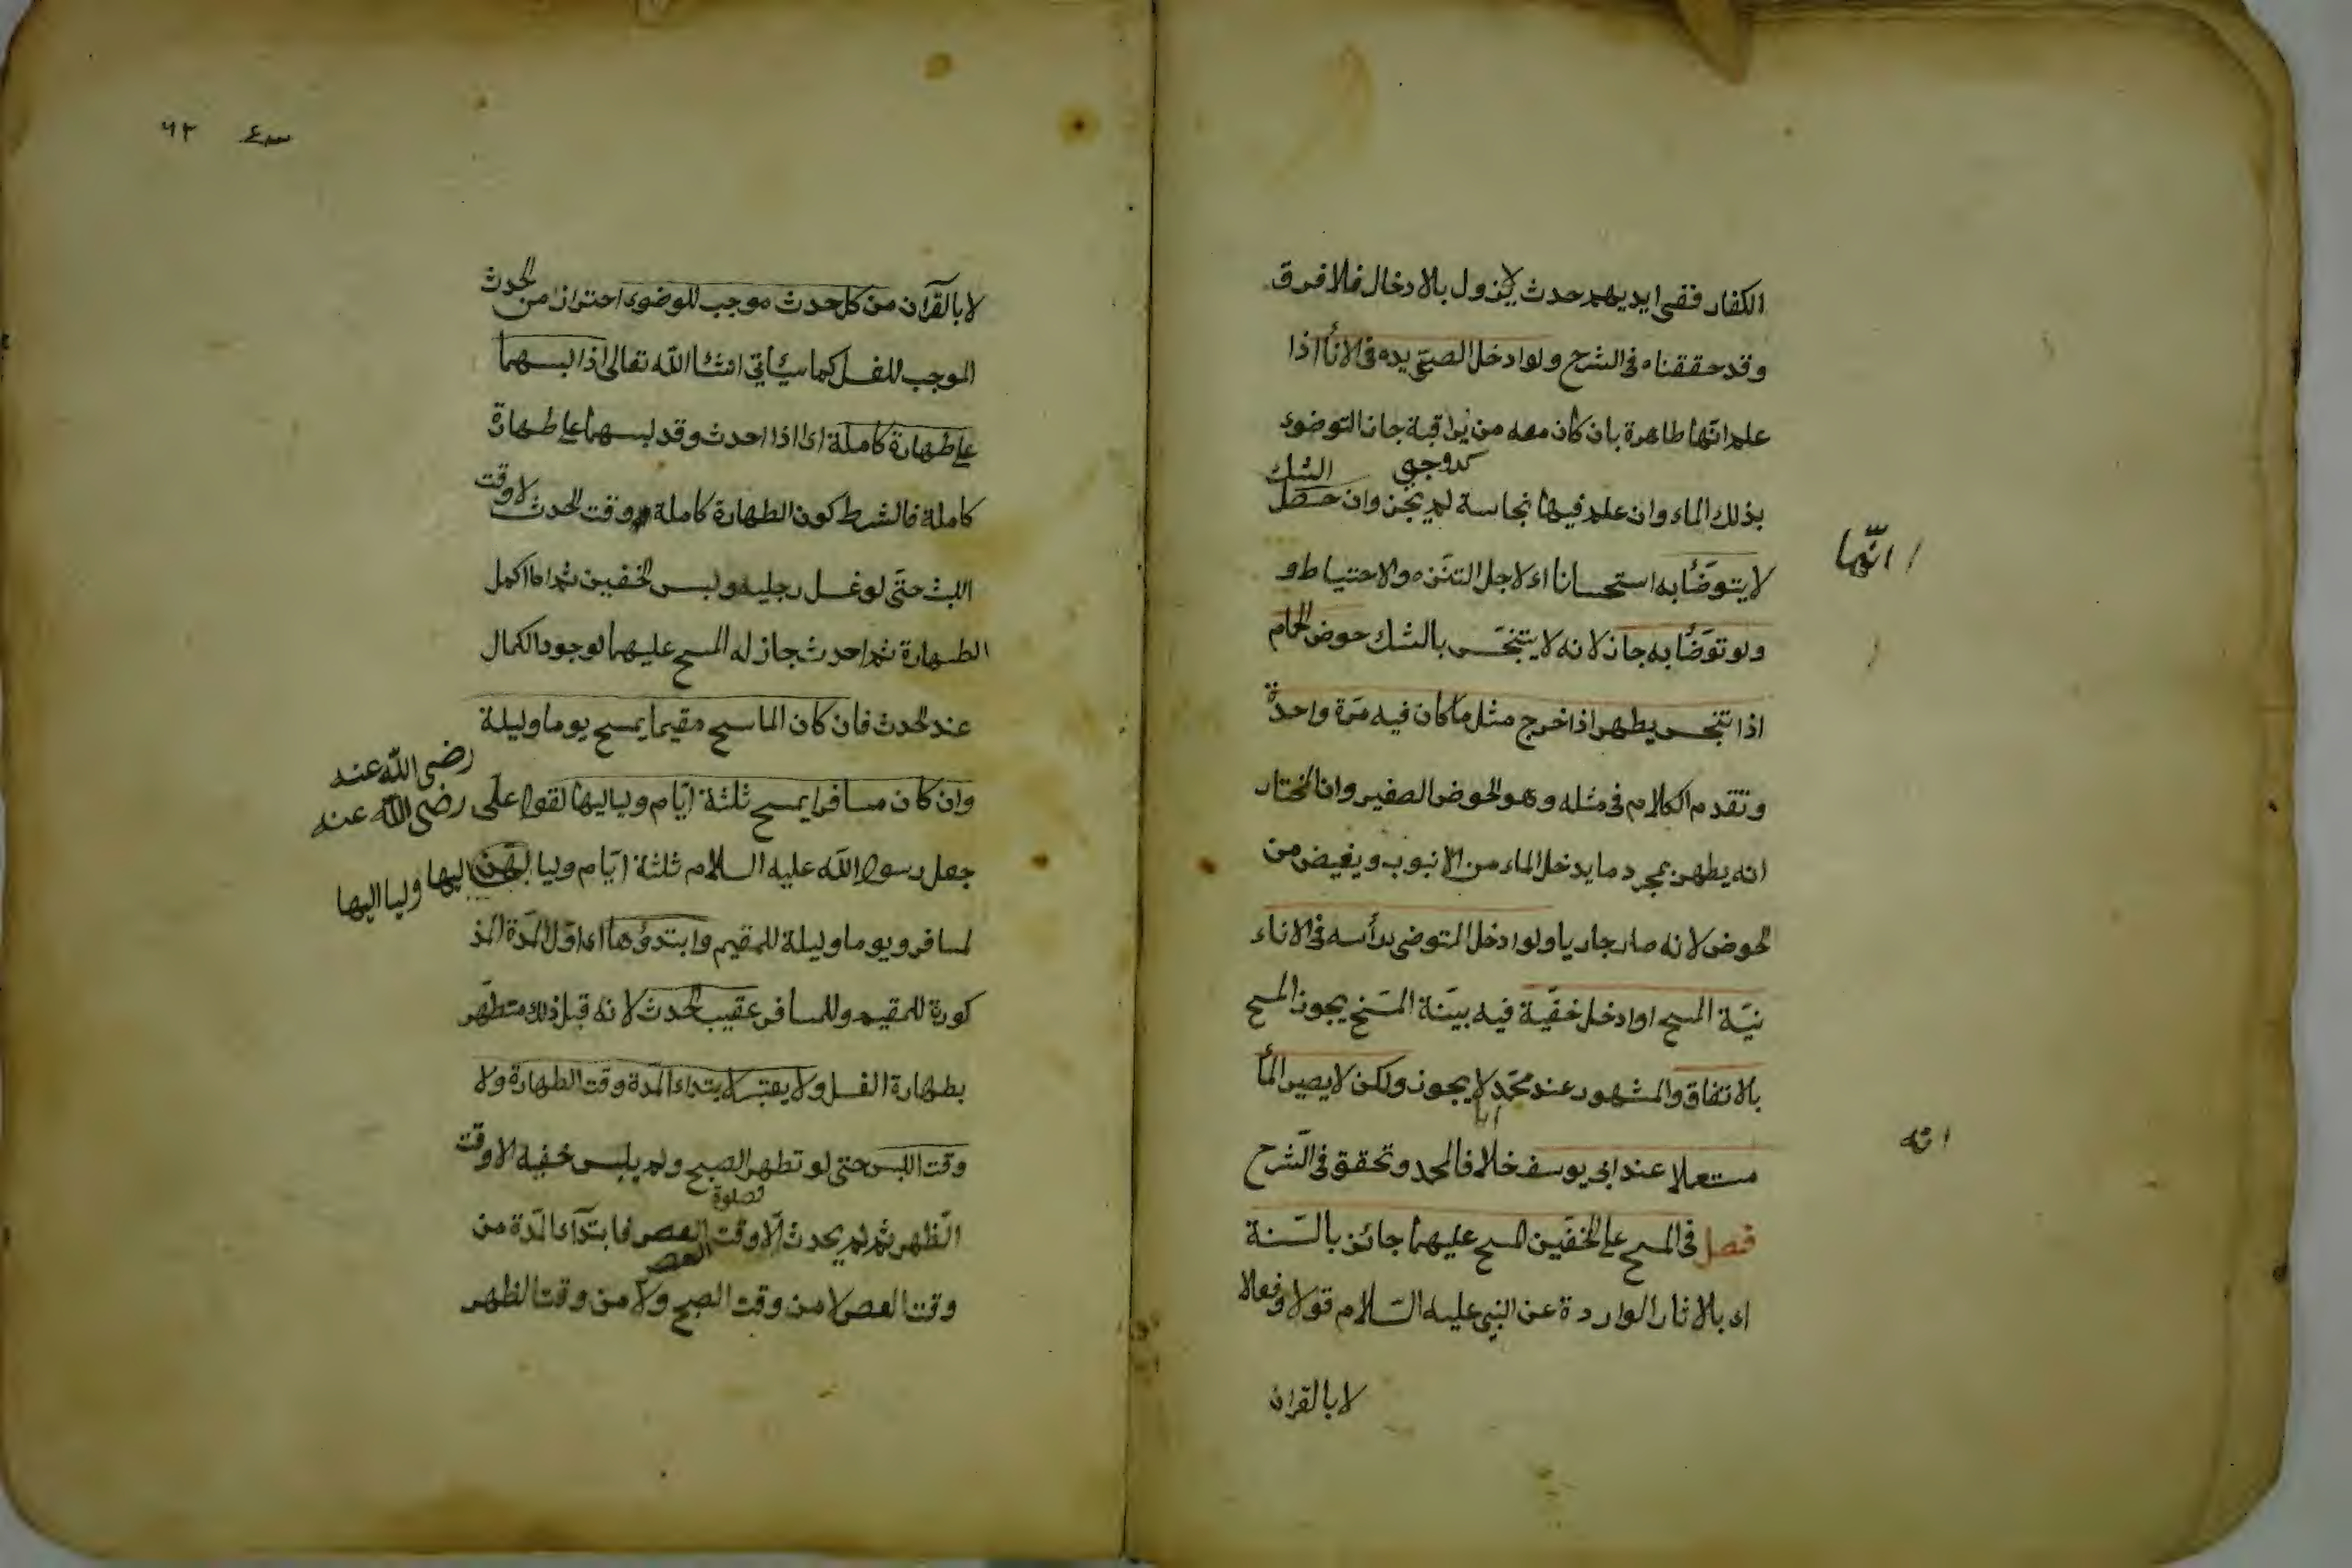 الكفار ففى ايديهم حدث لا يزول بالادخال فلا فرق
وقد حققناه فى الشرح ولو ادخل الصبى يده فى الاناء اذا
علم انها طاهرة بان كان معه من يراقبه جاز التوضوء
بذلك الماء وان علم فيها نجاسة لم يجز وان حصل الشك
انها
لا يتوضأ به استحسانا اى لاجل التنزه والاحتياط و
ولو توضأ به جاز لانه لا يتنجس بالشك حوض الحمام
اذا تنجس يطهر اذا خرج مثل ما كان فيه مرة واحدة
وتقدم الكلام فى مثله وهو الحوض الصغير وان المختار
انه يطهر بمجرد ما يدخل الماء من الانبوب ويفيض من
الحوض لانه صار جاريا ولو ادخل المتوضى رأسه فى الاناء
نيّة المسح او ادخل خفيه فيه بنية المسح يجوز المسح
بالاتفاق والمشهور عند محمد لا يجوز ولكن لا يصير الماء
انه
مستعملا عند ابى يوسف خلافا لمحمد وتحقق فى الشرح
فصل فى المسح على الخفين المسح عليهما جائز بالسّنة
اى بالاثار الواردة عن النبى عليه السّلام قولا وفعلا
لا بالقران
٦٣
لا بالقرآن من كل حدث موجب للوضوء احتراز من الحدث
الموجب للغسل كما سيأتى انشا الله تعالى اذا لبسهما
على طهارة كاملة اى اذا احدث وقد لبسهما على طهارة
كاملة فالشرط كون الطهارة كاملة وقت الحدث لا وقت
اللبث حتّى لو غسل رجليه ولبس الخفين ثم اكمل
الطهارة ثم احدث جاز له المسح عليهما لوجود الكمال
عند الحدث فان كان الماسح مقيما يمسح يوما وليلة
رضى الله عنه
وان كان مسافرا يمسح ثلثة ايّام ولياليها لقول على رضى الله عنه
جعل رسول الله عليه السلام ثلثة ايّام ولياليهن
ولياليها
لمسافر ويوما وليلة للمقيم وابتدؤها اى اوّل المدّة المذ
كورة للمقيم وللمسافر عقيب الحدث لانه قبل ذلك متطهر
بطهارة الغسل ولا يعتبر لابتداء المدة وقت الطهارة ولا
وقت اللبس حتى لو تطهر الصبح ولم يلبس خفيه الا وقت
الظهر ثم لم يحدث الّا وقت العصر فابتدآء المدّة من
العصر
وقت العصر لا من وقت الصبح ولا من وقت الظهر